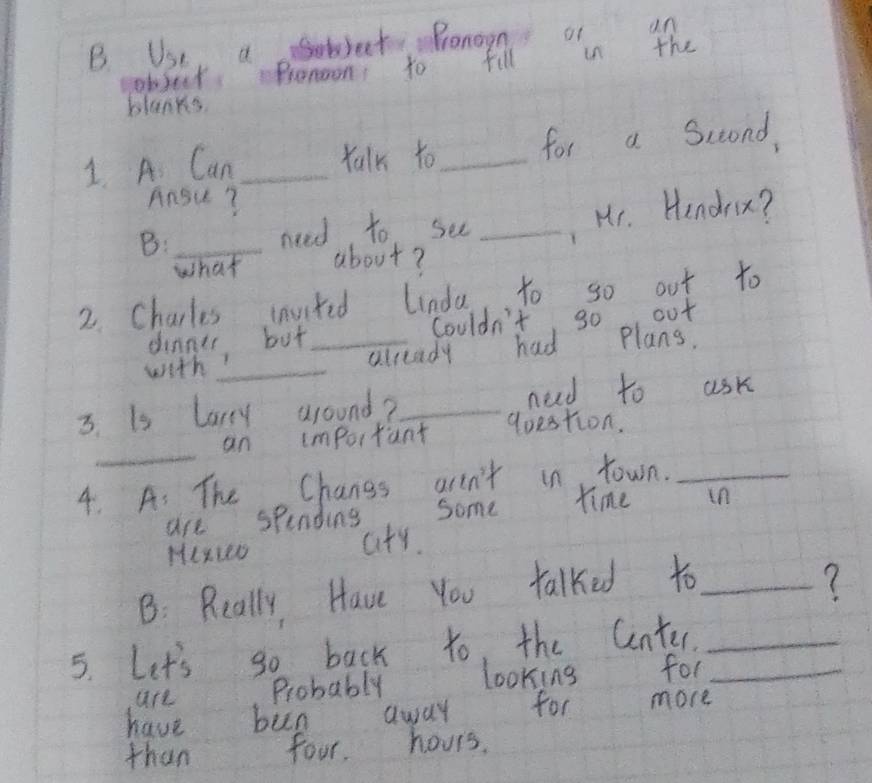 B. Use a Subject Pronoun or an
object Pronoun to fill in the
blanks.
1. A: Can ____ talk to ____ for a Second,
Angie?
B: ____ need to see ____, Mr. Hendrix?
what about?
2. Charles invited Linda to go out to
dinner, but ____ couldn't go out
with ____ already had plans.
3. Is Larry around? ____ need to ask
____ an important question.
4. A: The Changs aren't in town. ____
are spending some time in
Mexico city.
B: Really, Have you talked to ____?
5. Let's go back to the Center. ____
are Probably looking for ____
have been away for more
than four. hours.